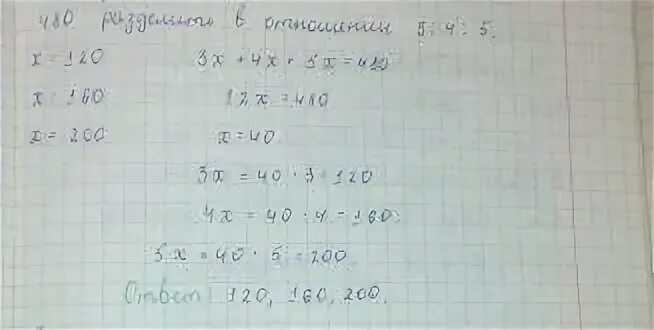 480 разделить в отношении 5:4:5.
x=120 3x+4x+5x=480
x=160 12x=480
x=200 x=40
3x=40·3=120
4x=40·4=160
5x=40·5=200
Ответ: 120, 160, 200.